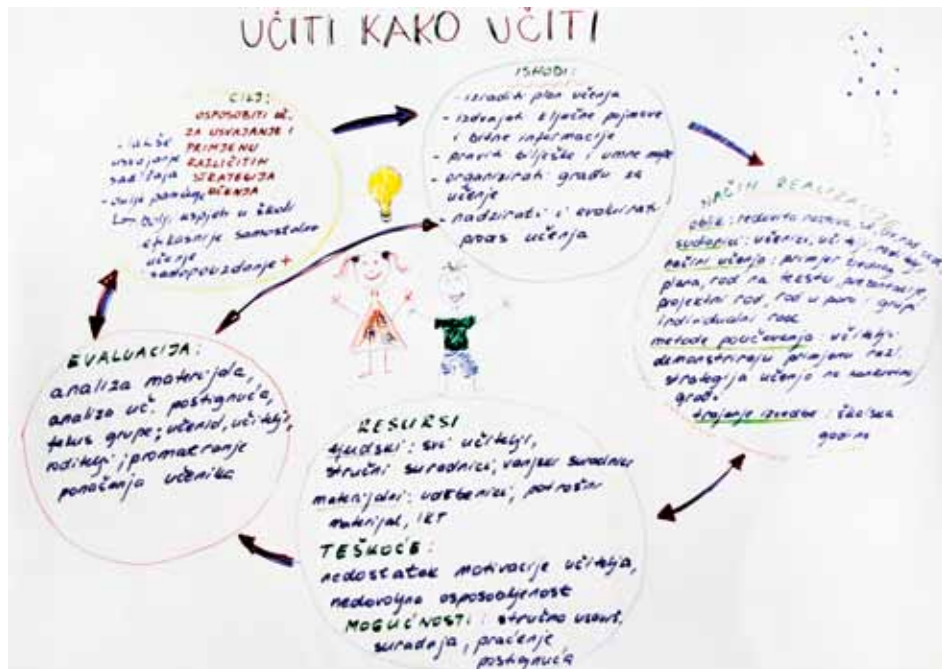 UČITI KAKO UČITI
CILJ:
OSPOSOBITI UČ.
ZA USVAJANJE I
PRIMJENU
RAZLIČITIH
STRATEGIJA
UČENJA
- lakše
usvajanje
sadržaja
- bolje
bolji uspjeh u školi
efikasnije samostalno
učenje
samopouzdanje +
ISHODI:
- izraditi plan učenja
- izdvajati ključne pojmove
i bitne informacije
- praviti bilješke i umne mape
- organizirati građu za
učenje
- nadzirati i evaluirati
proces učenja
NAČIN REALIZACIJE
oblik: redovita nastava,
sudionici: učenici, učitelji, roditelji
načini učenja: primjer
plana, rad na tekstu, prezentacije,
projektni rad, rad u paru i grupi
individualni rad
metode poučavanja: učitelji
demonstriraju primjenu razl.
strategija učenja na konkretnoj
građi
trajanje izvedbe: školska
godina
RESURSI
ljudski: svi učitelji,
stručni suradnici, vanjski suradnici
materijalni: udžbenici, potrošni
materijal, IKT
TEŠKOĆE:
nedostatak motivacije učitelja,
nedovoljna osposobljenost
MOGUĆNOSTI: stručno usavrš.,
suradnja, praćenje
postignuća
EVALUACIJA:
analiza materijala,
analiza uč. postignuća,
fokus grupe; učenici, učitelji,
roditelji; promatranje
ponašanja učenika